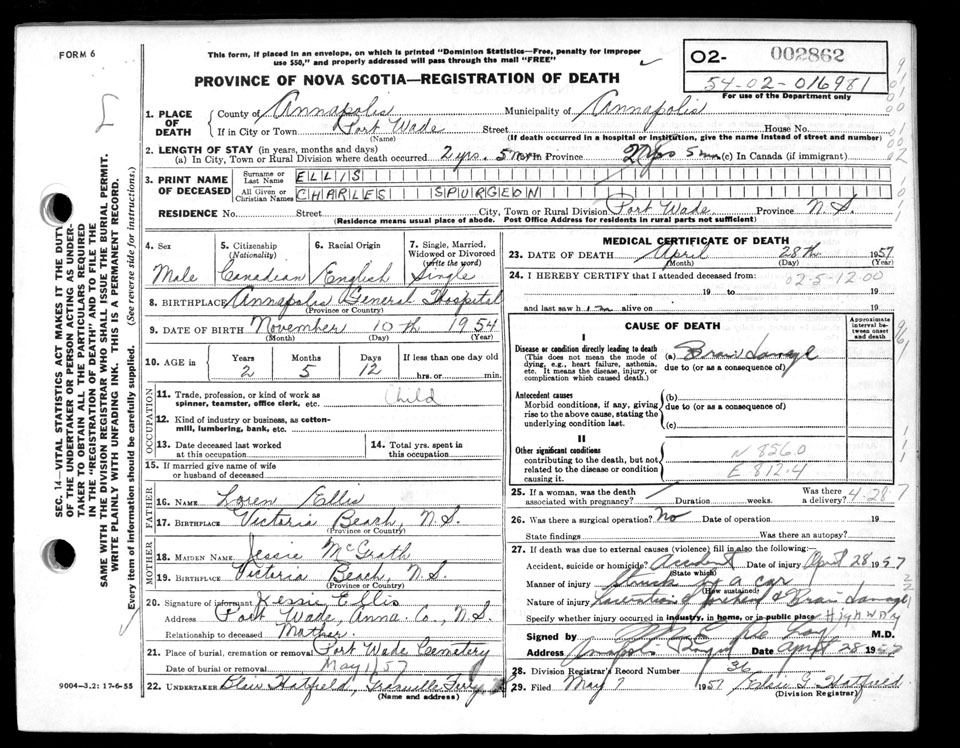 FORM 6
This form, if placed in an envelope, on which is printed "Dominion Statistics—Free, penalty for improper
use $50," and properly addressed will pass through the mail "FREE"
PROVINCE OF NOVA SCOTIA—REGISTRATION OF DEATH
02- 002862
54-02-016981
For use of the Department only
1. PLACE OF DEATH
County of Annapolis Municipality of Annapolis
If in City or Town Port Wade Street House No.
(Name) (If death occurred in a hospital or institution, give the name instead of street and number)
2. LENGTH OF STAY (in years, months and days)
(a) In City, Town or Rural Division where death occurred 2 yrs. 5 mos in Province 2 yrs 5 mos (c) In Canada (if immigrant)
3. PRINT NAME OF DECEASED
Surname or Last Name ELLIS
All Given or Christian Names CHARLES SPURGEON
RESIDENCE No. Street City, Town or Rural Division Port Wade Province N.S.
(Residence means usual place of abode. Post Office Address for residents in rural parts not sufficient)
4. Sex 5. Citizenship (Nationality) 6. Racial Origin 7. Single, Married, Widowed or Divorced (write the word)
Male Canadian English Single
8. BIRTHPLACE Annapolis General Hospital
(Province or Country)
9. DATE OF BIRTH November 10th 1954
(Month) (Day) (Year)
10. AGE in Years Months Days If less than one day old
2 5 12 hrs. or min.
OCCUPATION
11. Trade, profession, or kind of work as spinner, teamster, office clerk, etc. Child
12. Kind of industry or business, as cotton-mill, lumbering, bank, etc.
13. Date deceased last worked at this occupation 14. Total yrs. spent in this occupation
15. If married give name of wife or husband of deceased
FATHER
16. NAME Loren Ellis
17. BIRTHPLACE Victoria Beach, N.S.
(Province or Country)
MOTHER
18. MAIDEN NAME Jessie McGrath
19. BIRTHPLACE Victoria Beach, N.S.
(Province or Country)
20. Signature of informant Jessie Ellis
Address Port Wade, Anna. Co., N.S.
Relationship to deceased Mother.
21. Place of burial, cremation or removal Port Wade Cemetery
Date of burial or removal May 1/57
22. UNDERTAKER Blair Hatfield, Granville Ferry,
(Name and address)
9004—3.2: 17-6-55
MEDICAL CERTIFICATE OF DEATH
23. DATE OF DEATH April 28th 1957
(Month) (Day) (Year)
24. I HEREBY CERTIFY that I attended deceased from:
02-5-12-00
19 to 19
and last saw h alive on 19
CAUSE OF DEATH
Approximate interval between onset and death
I
Disease or condition directly leading to death
(This does not mean the mode of dying, e.g., heart failure, asthenia, etc. It means the disease, injury, or complication which caused death.)
(a) Brain Damage
due to (or as a consequence of)
Antecedent causes
Morbid conditions, if any, giving rise to the above cause, stating the underlying condition last.
(b)
due to (or as a consequence of)
(c)
II
Other significant conditions contributing to the death, but not related to the disease or condition causing it.
N 856.0
E 812.4
25. If a woman, was the death associated with pregnancy? Duration weeks. Was there a delivery? 4-28-7
26. Was there a surgical operation? No Date of operation 19
State findings Was there an autopsy?
27. If death was due to external causes (violence) fill in also the following:
Accident, suicide or homicide? Accident Date of injury April 28 1957
(State which)
Manner of injury Struck by a car
(How sustained)
Nature of injury Laceration of forehead & Brain Damage
Specify whether injury occurred in industry, in home, or in public place Highway
Signed by M.D.
Address Annapolis Royal Date April 28 1957
28. Division Registrar's Record Number 36
29. Filed May 7 1957 G. Hatfield
(Division Registrar)
SEC. 14—VITAL STATISTICS ACT MAKES IT THE DUTY
OF THE UNDERTAKER OR PERSON ACTING AS UNDER-
TAKER TO OBTAIN ALL THE PARTICULARS REQUIRED
IN THE "REGISTRATION OF DEATH" AND TO FILE THE
SAME WITH THE DIVISION REGISTRAR WHO SHALL ISSUE THE BURIAL PERMIT.
WRITE PLAINLY WITH UNFADING INK. THIS IS A PERMANENT RECORD.
Every item of information should be carefully supplied. (See reverse side for instructions.)